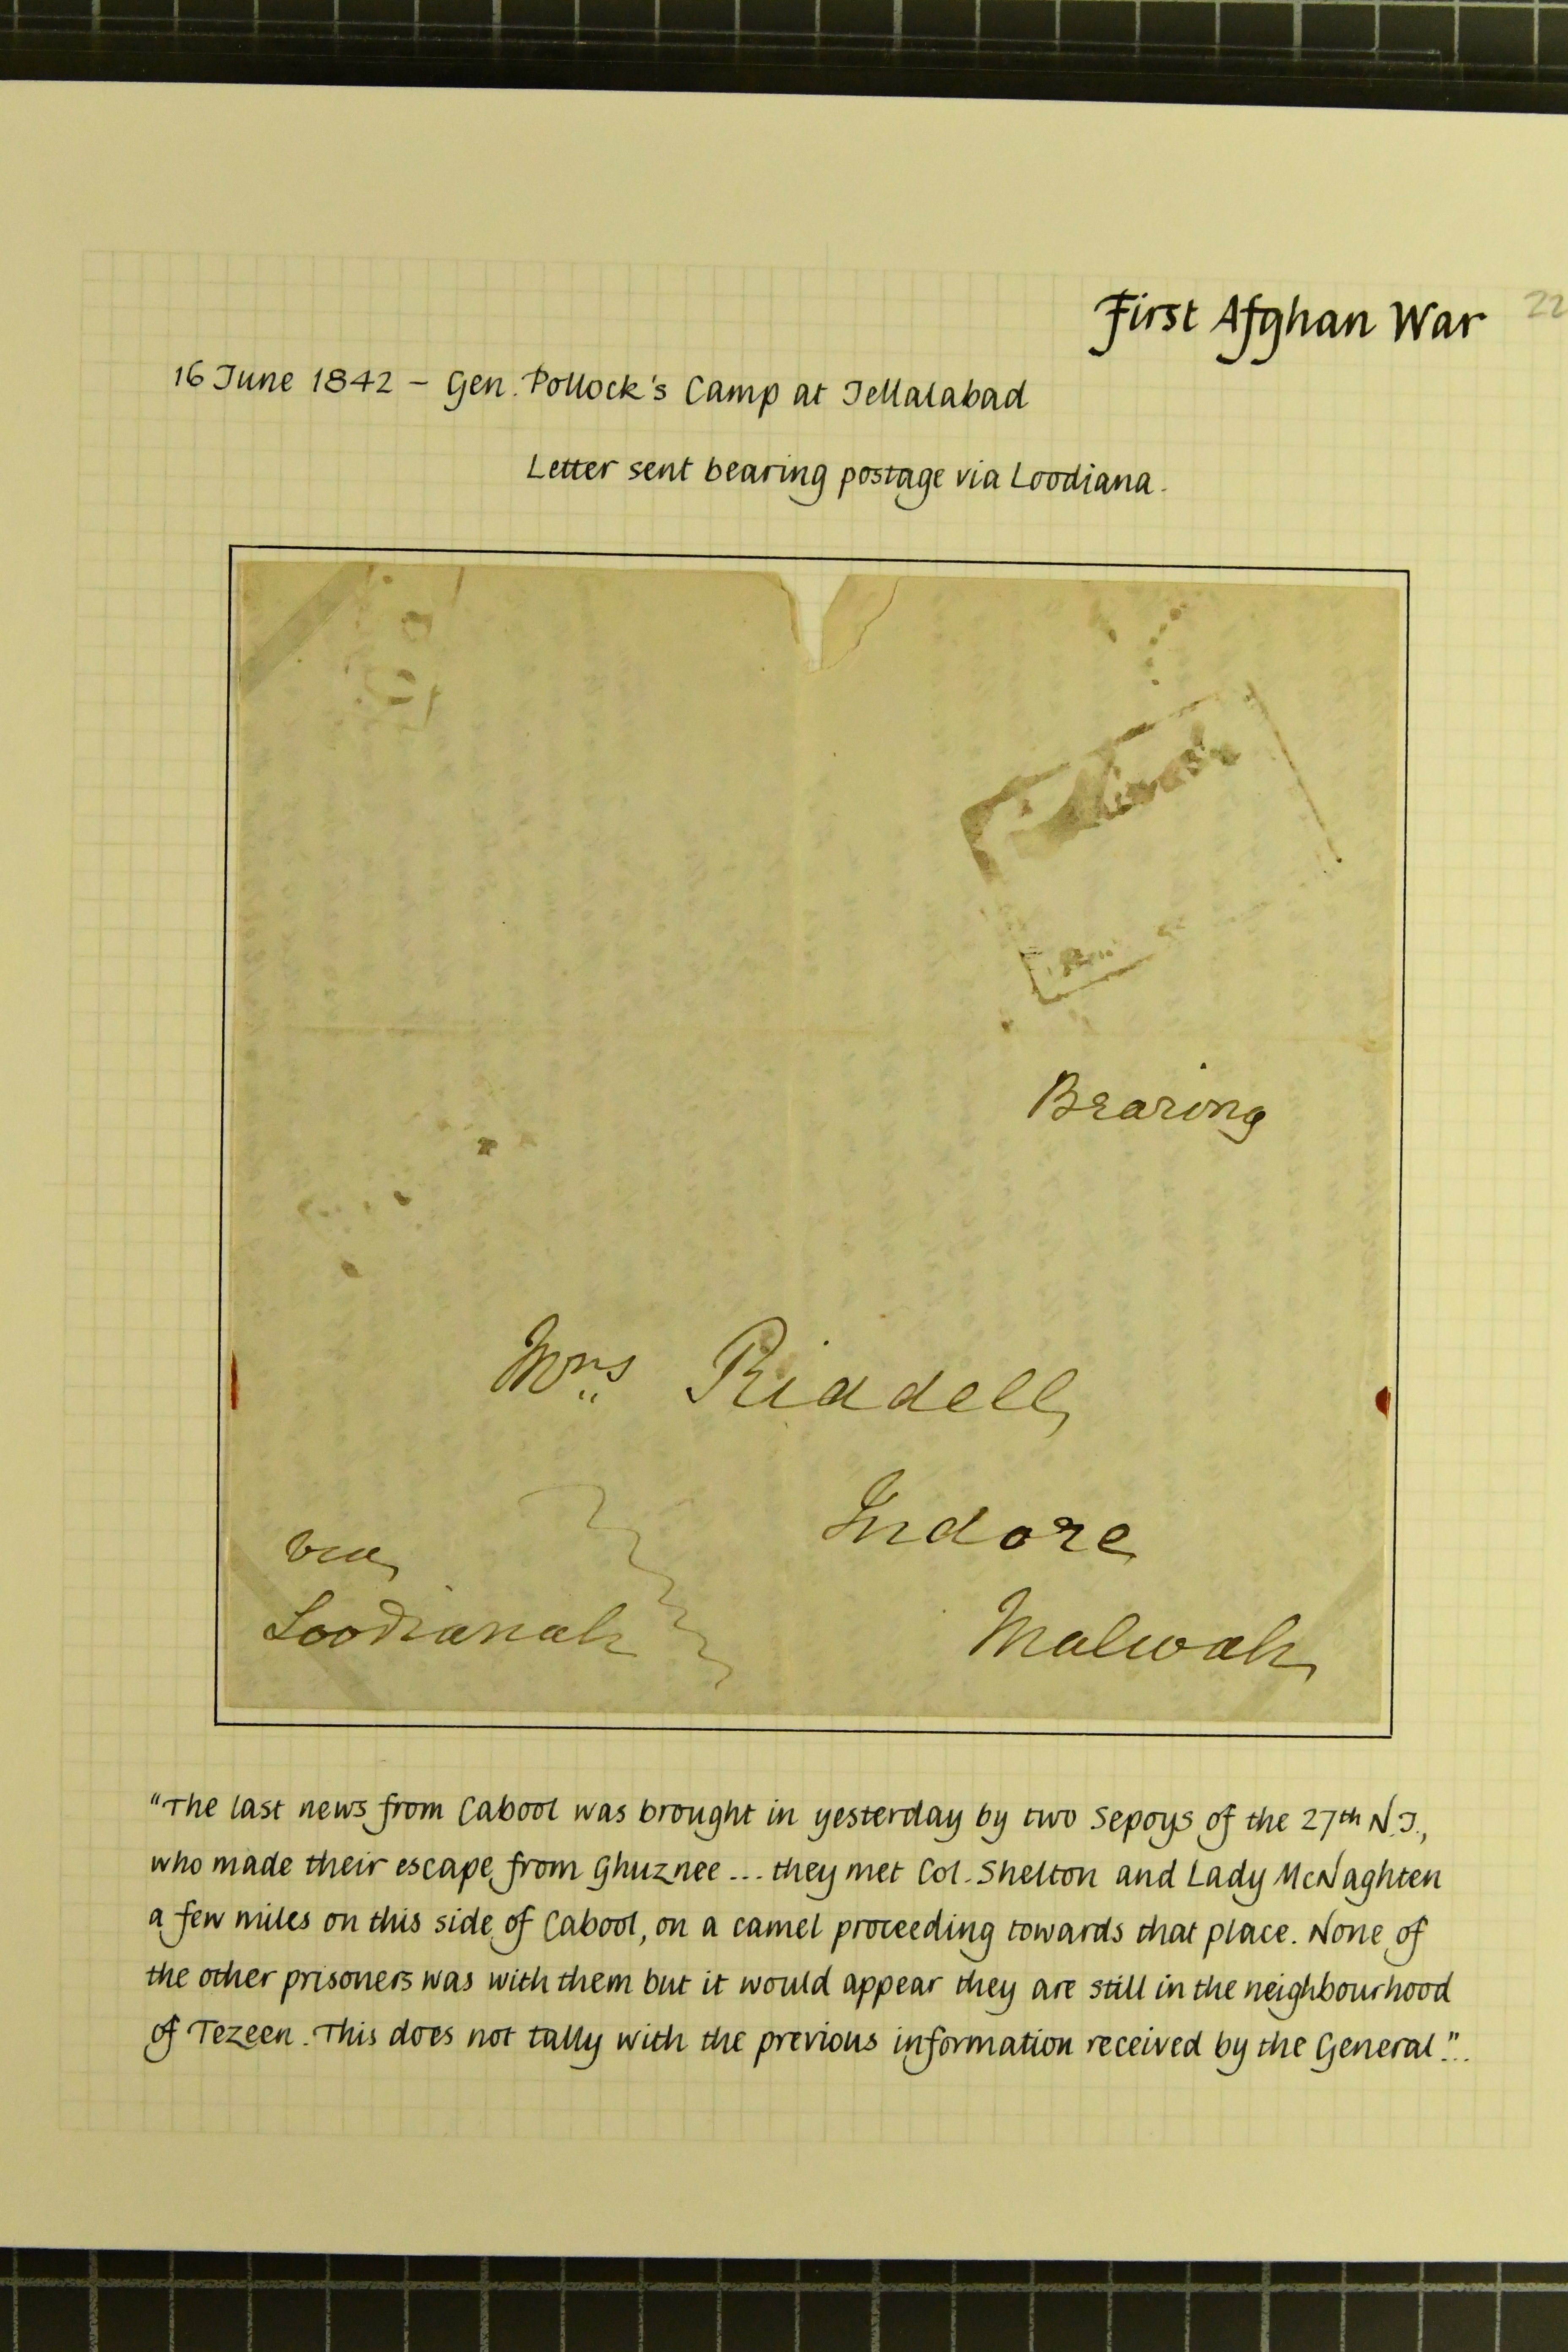 First Afghan War
22
16 June 1842 – Gen. Pollock's Camp at Jellalabad
Letter sent bearing postage via Loodiana.
Bearing
Mrs Riddell
Indore
via
Loodianah
Malwah
"The last news from Cabool was brought in yesterday by two Sepoys of the 27th N.I.,
who made their escape from Ghuznee ... they met Col. Shelton and Lady McNaghten
a few miles on this side of Cabool, on a camel proceeding towards that place. None of
the other prisoners was with them but it would appear they are still in the neighbourhood
of Tezeen. This does not tally with the previous information received by the General."...